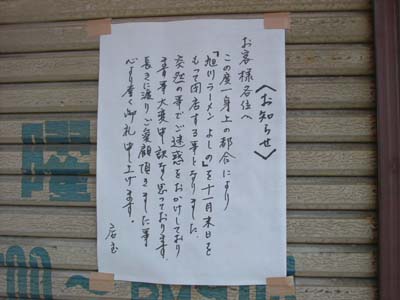 〈お知らせ〉
お客様各位へ
この度一身上の都合により
『旭川ラーメン よしの』を十一月末日を
もって閉店する事となりました。
突然の事でご迷惑をおかけしており
ます事大変申訳なく思っております。
長きに渡りご愛顧頂きました事、
心より厚く御礼申し上げます。
店主
曜